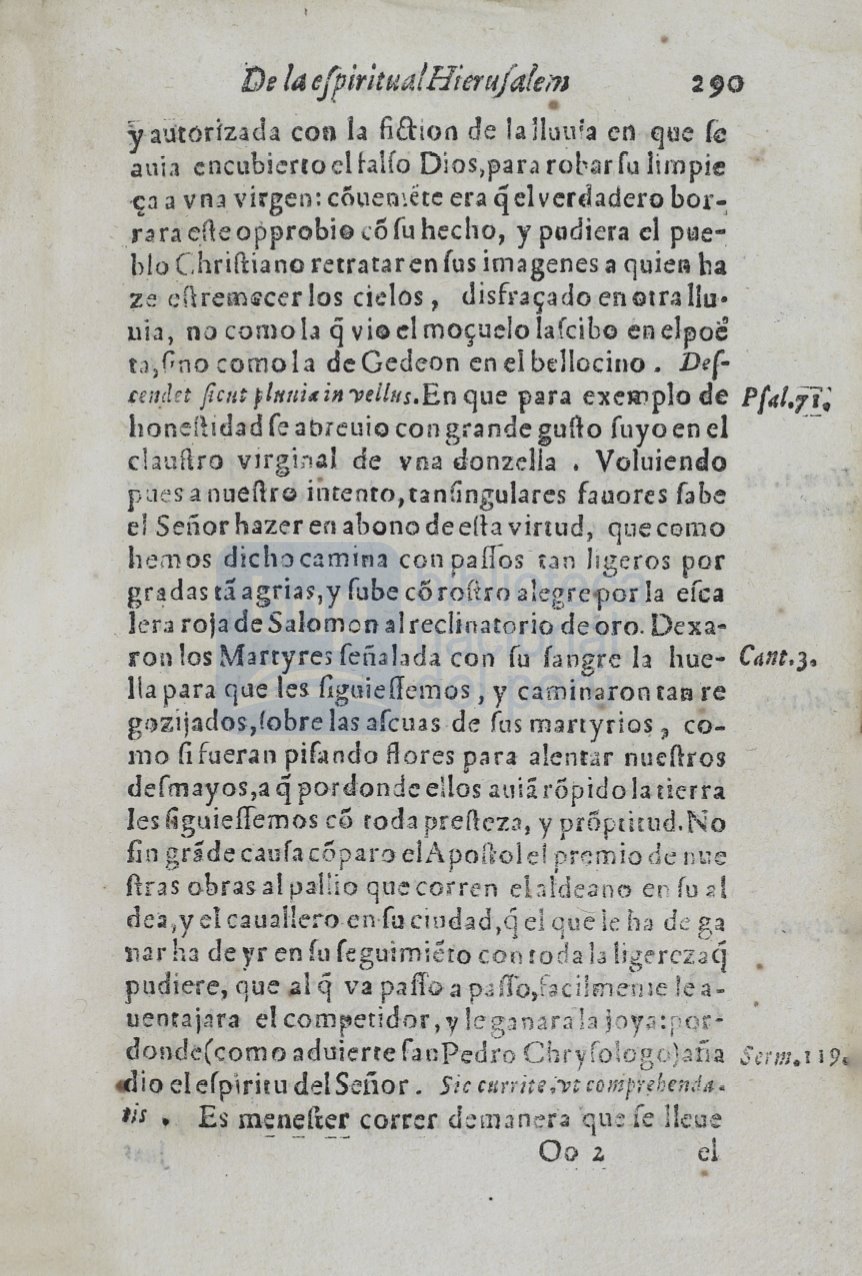 De la eſpiritual Hieruſalem 290
y autorizada con la fiction de la lluuia en que ſe
auia encubierto el falſo Dios, para robar ſu limpie
ça a vna virgen: cõueniẽte era q̃ el verdadero bor-
rara eſte opprobio cõ ſu hecho, y pudiera el pue-
blo Chriſtiano retratar en ſus imagenes a quien ha
ze eſtremecer los cielos, disfraçado en otra llu-
uia, no como la q̃ vio el moçuelo laſcibo en el poë
ta, ſino como la de Gedeon en el bellocino. Deſ-
cendet ſicut pluuia in vellus. En que para exemplo de Pſal.71.
honeſtidad ſe abreuio con grande guſto ſuyo en el
clauſtro virginal de vna donzella. Voluiendo
pues a nueſtro intento, tan ſingulares fauores ſabe
el Señor hazer en abono de eſta virtud, que como
hemos dicho camina con paſſos tan ligeros por
gradas tã agrias, y ſube cõ roſtro alegre por la eſca
lera roja de Salomon al reclinatorio de oro. Dexa-
ron los Martyres ſeñalada con ſu ſangre la hue- Cant.3.
lla para que les ſiguieſſemos, y caminaron tan re
gozijados, ſobre las aſcuas de ſus martyrios, co-
mo ſi fueran piſando flores para alentar nueſtros
deſmayos, a q̃ por donde ellos auiã rõpido la tierra
les ſiguieſſemos cõ toda preſteza, y prõptitud. No
ſin grãde cauſa cõparo el Apoſtol el premio de nue
ſtras obras al pallio que corren el aldeano en ſu al
dea, y el cauallero en ſu ciudad, q̃ el que le ha de ga
nar ha de yr en ſu ſeguimiẽto con toda la ligereza q̃
pudiere, que al q̃ va paſſo a paſſo, facilmente le a-
uentajara el competidor, y le ganara la joya: por-
donde (como aduierte ſan Pedro Chryſologo) aña Serm.119.
dio el eſpiritu del Señor. Sic currite, vt comprehenda-
tis. Es meneſter correr de manera que ſe lleue
Oo 2 el